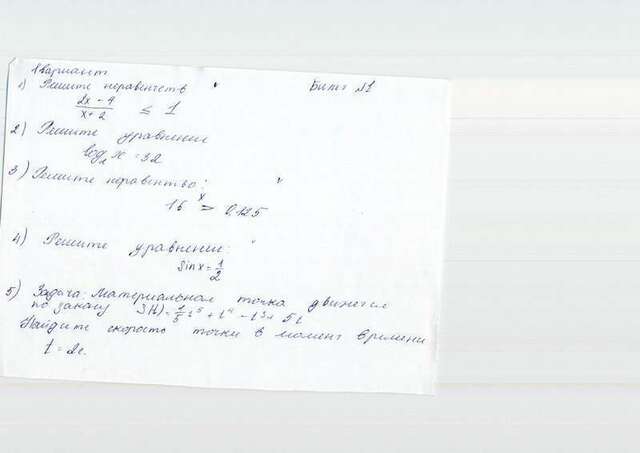 1 вариант
1) Решите неравенств Билет №1
2x - 4 / x + 2 ≤ 1
2) Решите уравнение
log₂ x = 32
3) Решите неравенство:
16^x > 0,125
4) Решите уравнение:
sin x = 1/2
5) Задача: Материальная точка движется
по закону S(t) = 1/5 t⁵ + t⁴ - t³ + 5t
Найдите скорость точки в момент времени
t = 2с.